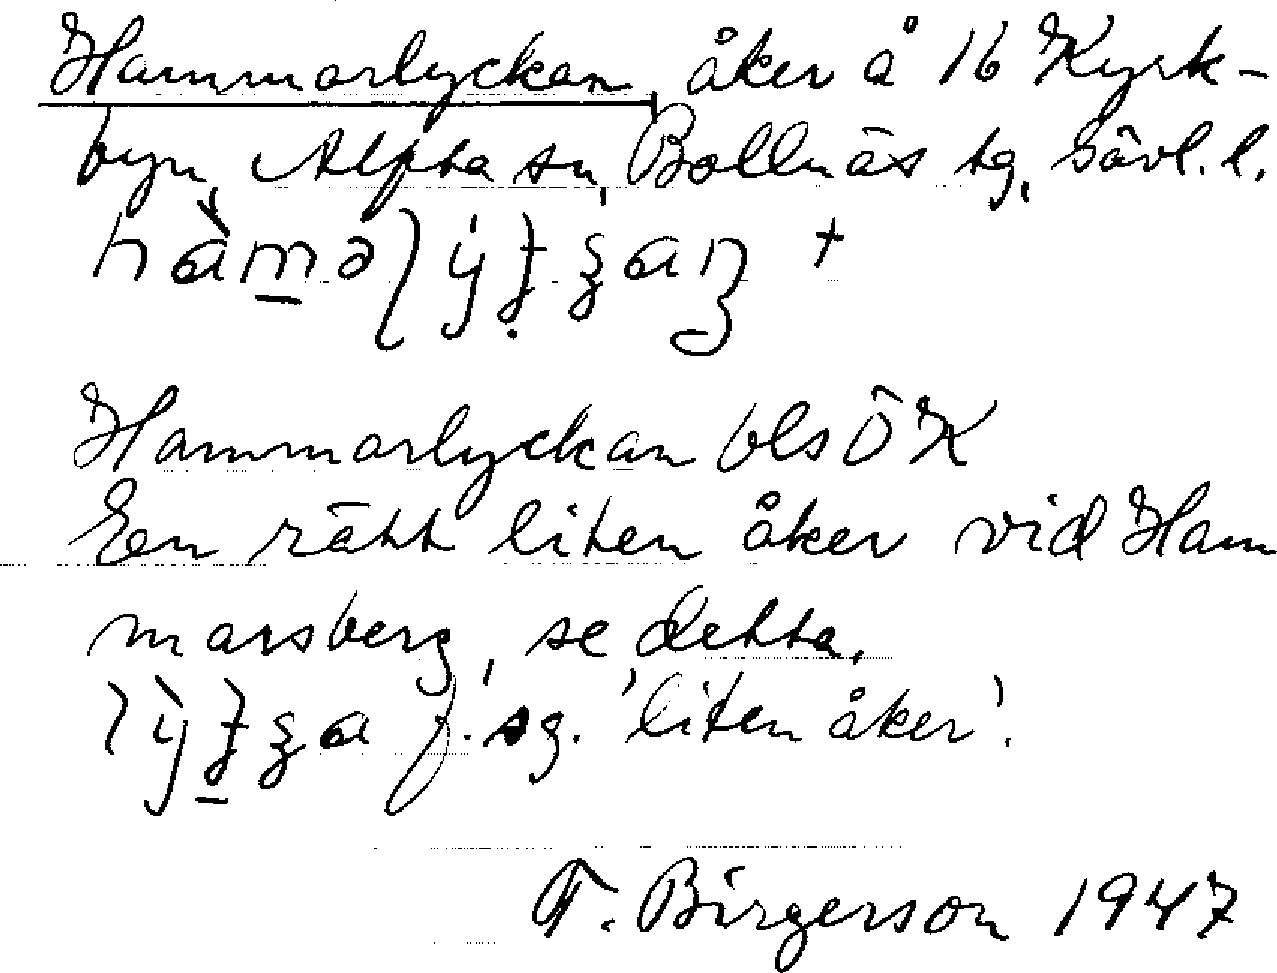 Hammarlyckan, åker å 16 Kyrk-
byn, Alfta sn, Bollnäs tg, Gävl. l.
Hammarlyckan bls ÖK
En rätt liten åker vid Ham
marsberg, se detta.
f. sg. 'liten åker'.
F. Birgerson 1947